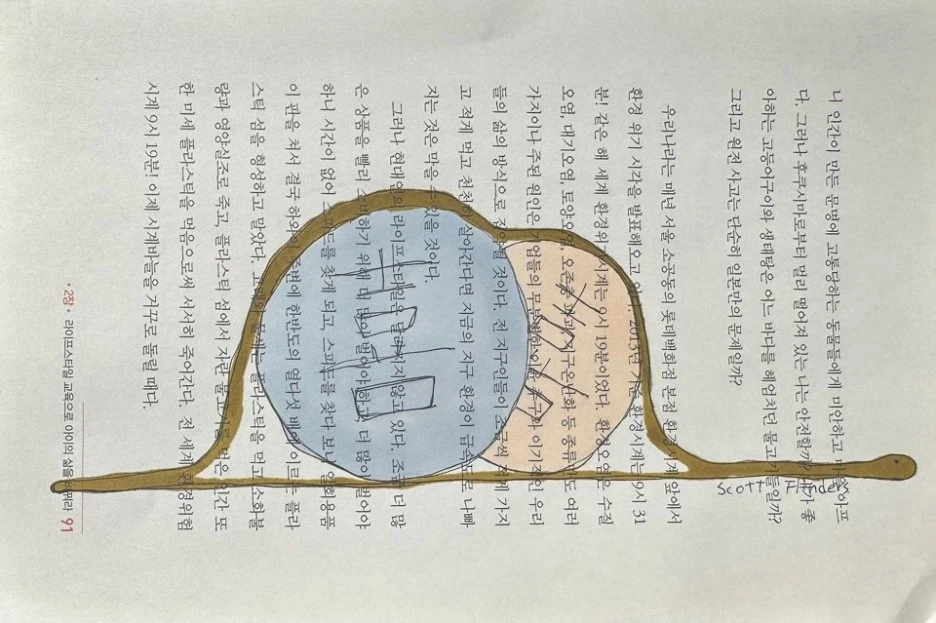 니 인간이 만든 문명에 고통당하는 동물들에게 미안하고 아프
다. 그러나 후쿠시마로부터 멀리 떨어져 있는 나는 안전할까? 좋
아하는 고등어구이와 생태탕은 어느 바다를 헤엄치던 물고기들일까?
그리고 원전 사고는 단순히 일본만의 문제일까?
우리나라는 매년 서울 소공동의 롯데백화점 본점 환경시계 앞에서
환경 위기 시각을 발표해오고 있다. 2013년 기준 환경시계는 9시 31
분! 같은 해 세계 환경위기시계는 9시 19분이었다. 환경오염은 수질
오염, 대기오염, 토양오염, 오존층 파괴, 지구온난화 등 종류만도 여러
가지이나 주된 원인은 기업들의 무분별한 이윤 추구와 이기적인 우리
들의 삶의 방식으로 것이다. 전 지구인들이 조금씩 적게 가지
고 적게 먹고 천천히 살아간다면 지금의 지구 환경이 급속도로 나빠
지는 것은 막을 수 있을 것이다.
그러나 현대인의 라이프스타일은 달라지지 않고 있다. 조금 더 많
은 상품을 빨리 소비하기 위해 더 많이 벌어야 하고, 더 많이 벌어야
하니 시간이 없어 스피드를 찾게 되고, 스피드를 찾다 보니 일회용품
이 판을 쳐서 결국 하와이 주변에 한반도의 열다섯 배에 이르는 플라
스틱 섬을 형성하고 말았다. 플라스틱을 먹고 소화불
량과 영양실조로 죽고, 플라스틱 섬에서 자란 물고기를 먹은 인간 또
한 미세 플라스틱을 먹음으로써 서서히 죽어간다. 전 세계 환경위험
시계 9시 19분! 이제 시계바늘을 거꾸로 돌릴 때다.
• 2장 • 라이프스타일 교육으로 아이의 삶을 바꿔라 91
Scott